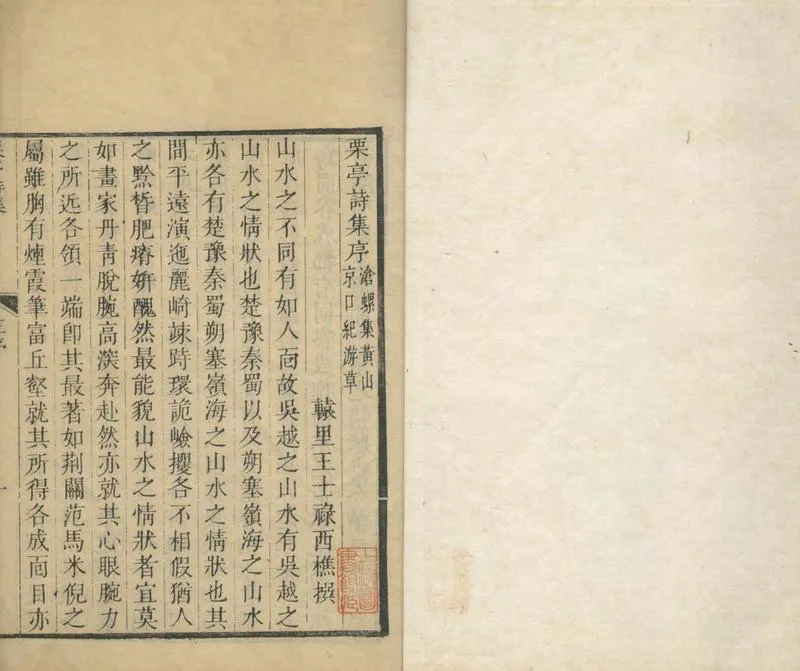 栗亭詩集序
滄螺集黃山
京口紀游草
轅里王士祿西樵撰
山水之不同有如人靣故吳越之山水有吳越之
山水之情狀也楚豫秦蜀以及朔塞嶺海之山水
亦各有楚豫秦蜀朔塞嶺海之山水之情狀也其
間平遠演迤麗崎竦峙環詭嶮攫各不相假猶人
之黔晳肥瘠妍醜然最能貌山水之情狀者宜莫
如畫家丹青脫腕高深奔赴然亦就其心眼腕力
之所近各領一端卽其最著如荆關范馬米倪之
屬雖胸有煙霞筆富丘壑就其所得各成靣目亦